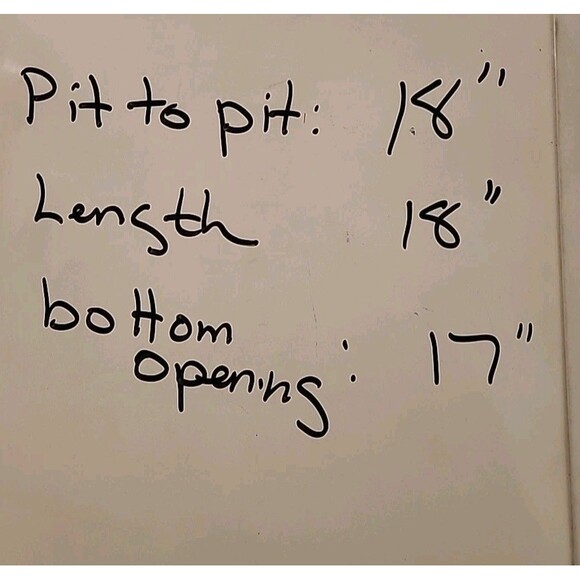 Pit to pit: 18"
Length 18"
bottom
opening: 17"